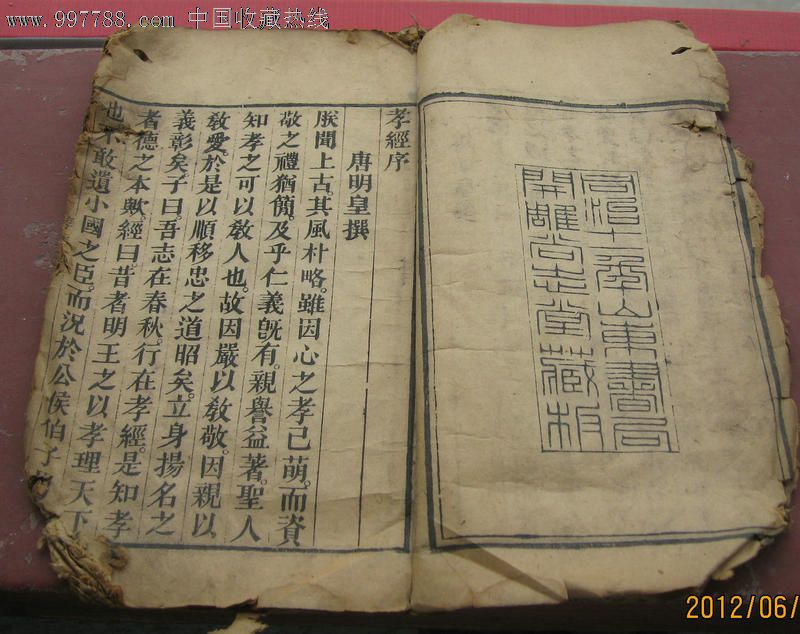 www.997788.com 中国收藏热线
同治十一年山東書局
開雕尚志堂藏板
孝經序
唐明皇撰
朕聞上古。其風朴略。雖因心之孝已萌。而資
敬之禮猶簡。及乎仁義旣有。親譽益著。聖人
知孝之可以敎人也。故因嚴以敎敬。因親以
敎愛。於是以順移忠之道昭矣。立身揚名之
義彰矣。子曰。吾志在春秋。行在孝經。是知孝
者德之本歟。經曰。昔者明王之以孝理天下
也。不敢遺小國之臣。而況於公侯伯子
2012/06/